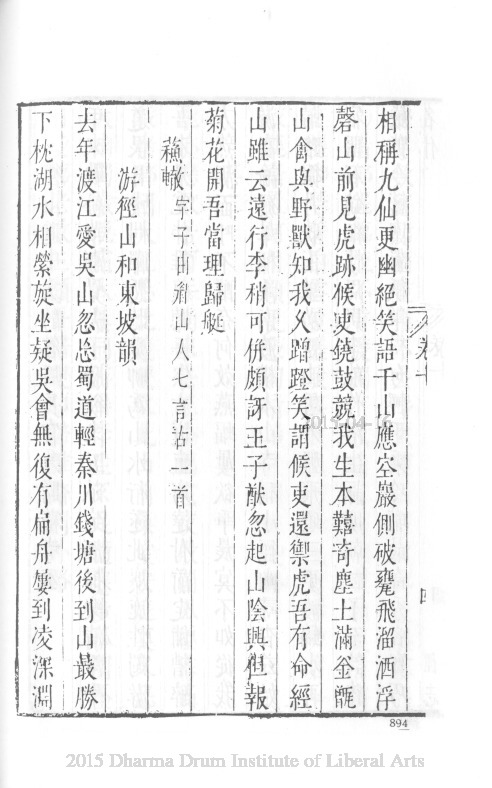 相稱九仙更幽絕笑語千山應空巖側破甕飛溜洒浮
磬山前見虎跡候吏鐃鼓競我生本囏奇塵土滿釜甑
山禽與野獸知我久蹭蹬笑謂候吏還禦虎吾有命經
山雖云遠行李稍可併頗訝王子猷忽起山陰興但報
菊花開吾當理歸艇
蘓轍 字子由眉山人七言古一首
游徑山和東坡韻
去年渡江愛吳山忽忘蜀道輕秦川錢塘後到山最勝
下枕湖水相縈旋坐疑吳會無復有扁舟屢到凌深淵
卷十
四
894
2015 Dharma Drum Institute of Liberal Arts